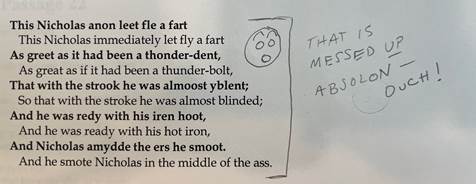 Passage 22
This Nicholas anon leet fle a fart
This Nicholas immediately let fly a fart
As greet as it had been a thonder-dent,
As great as if it had been a thunder-bolt,
That with the strook he was almoost yblent;
So that with the stroke he was almost blinded;
And he was redy with his iren hoot,
And he was ready with his hot iron,
And Nicholas amydde the ers he smoot.
And he smote Nicholas in the middle of the ass.
THAT IS
MESSED UP
ABSOLON —
OUCH!